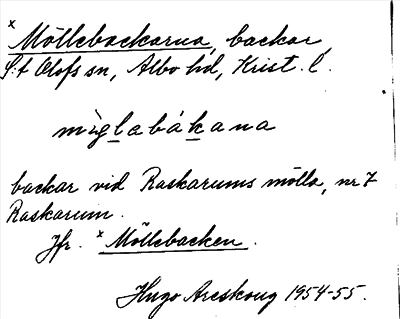 x Möllebackarna, backar
S:t Olofs sn, Albo hd, Krist. l.
backar vid Raskarums mölla, nr 7
Raskarum.
Jfr. x Möllebacken.
Hugo Areskoug 1954-55.